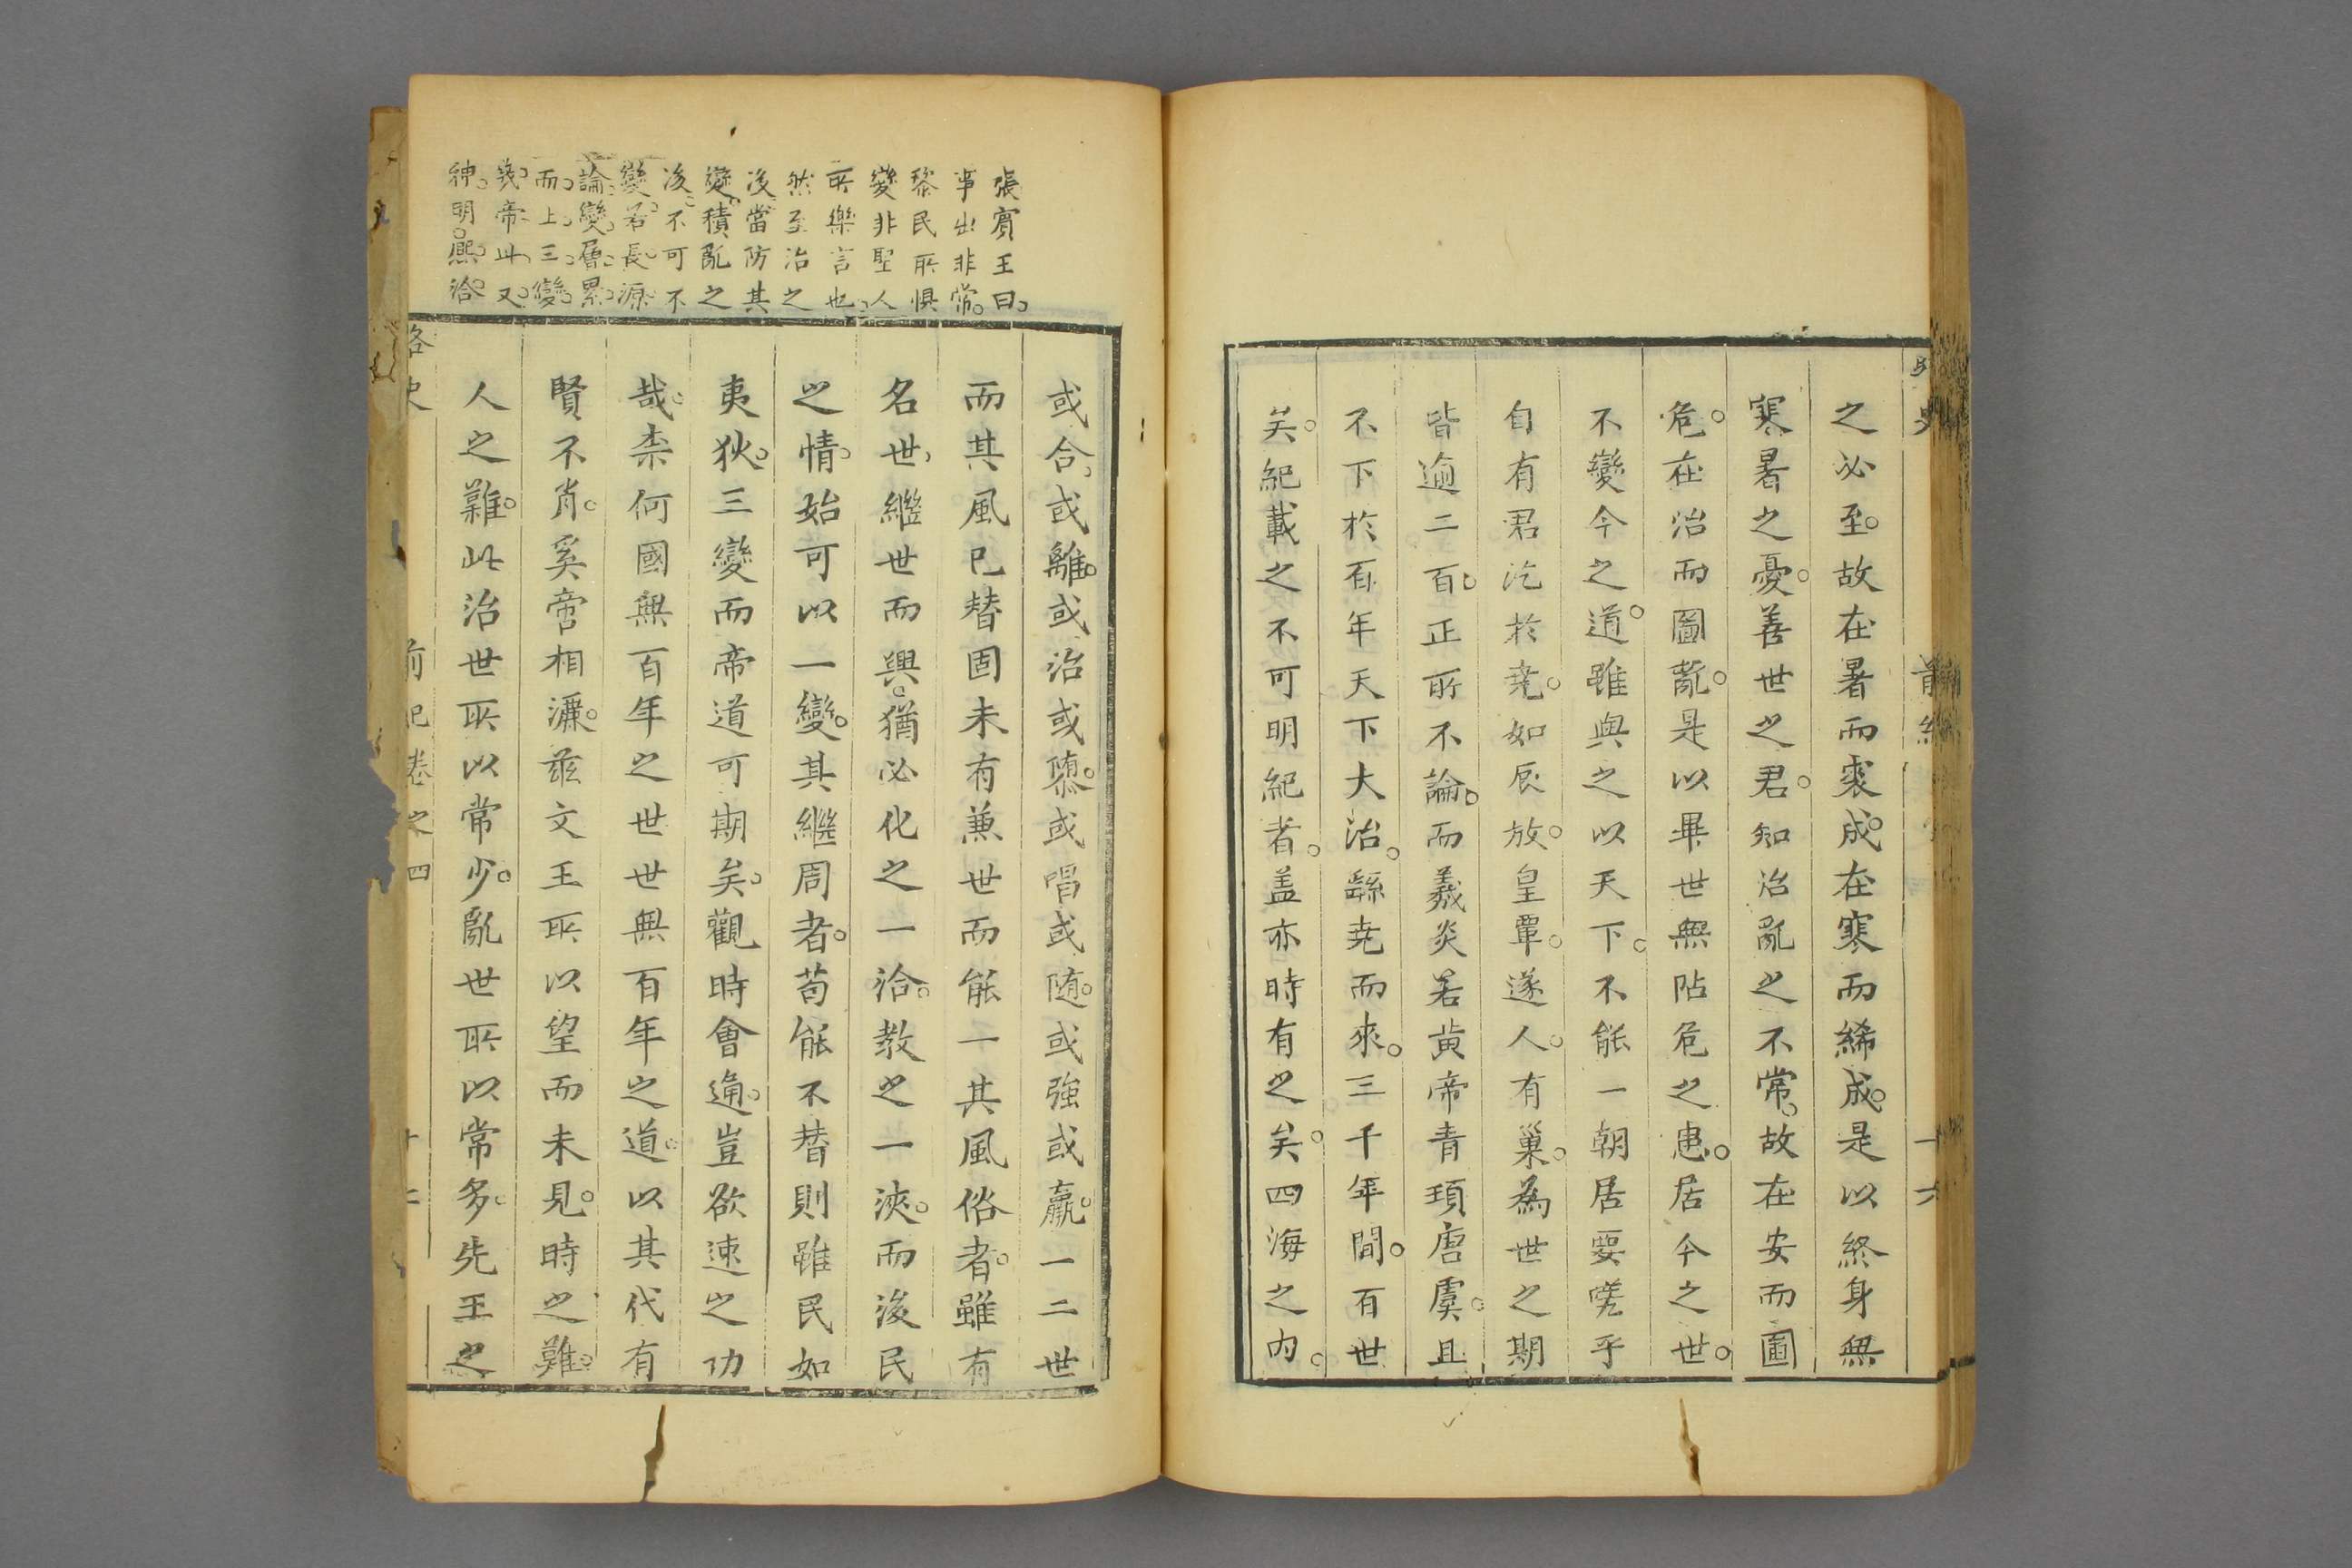 之必至。故在暑而裘成。在寒而絺成。是以終身無
寒暑之憂。善世之君。知治亂之不常。故在安而圖
危。在治而圖亂。是以畢世無阽危之患。居今之世。
不變今之道。雖與之以天下。不能一朝居要嘵乎
自有君汔於堯。如辰放。皇覃。遂人。有巢。為世之期
皆逾二百。正所不論。而羲炎若黄帝青頊唐虞。且
不下於百年天下大治。繇堯而來。三千年間。百世
矣。紀載之不可明紀者。盖亦時有之矣。四海之内。
張賓王曰。
事出非常。
黎民所惧
變非聖人
所樂言也。
然至治之
後當防其
變。積亂之
後。不可不
變。君長。源
論。變。層。累。
而。上。三。變。
幾。帝。此。又。
神。明。熈。洽。
或合。或離。或治或隳。或唱或随。或強或羸。一二世
而其風已替固未有兼世而能一其風俗者。雖有
名世。繼世而興。猶必化之一洽。教之一浹。而後民
之情。始可以一變。其繼周者。苟能不替則雖民如
夷狄。三變而帝道可期矣。觀時會通。豈欲速之功
哉。柰何國無百年之世世無百年之道。以其代有
賢不肖。奚啻相濂。兹文王所以望而未見。時之難。
人之難。此治世所以常少。亂世所以常多。先王之
路史
前紀卷之四
十七